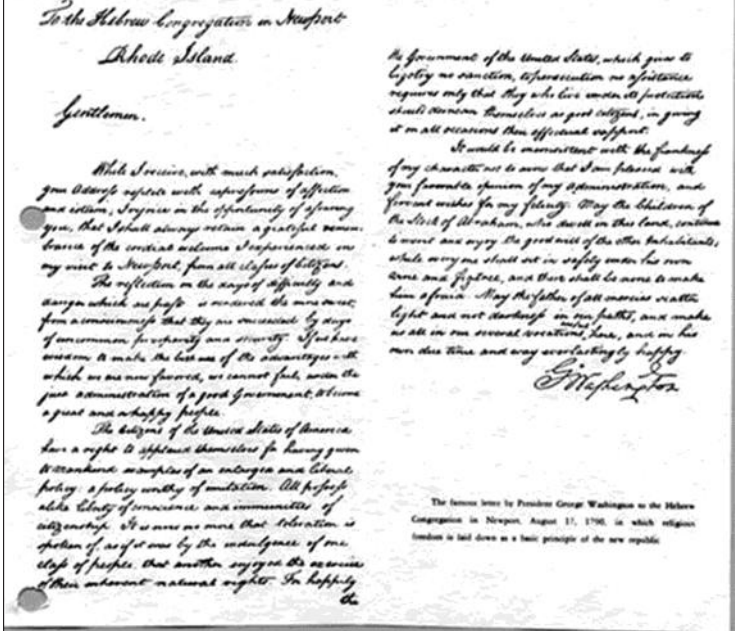 To the Hebrew Congregation in Newport
Rhode Island.
Gentlemen.
While I receive, with much satisfaction,
your Address replete with expressions of affection
and esteem, I rejoice in the opportunity of assuring
you, that I shall always retain a grateful remem-
brance of the cordial welcome I experienced in
my visit to Newport, from all classes of Citizens.
The reflection on the days of difficulty and
danger which are past is rendered the more sweet,
from a consciousness that they are succeeded by days
of uncommon prosperity and security. If we have
wisdom to make the best use of the advantages with
which we are now favored, we cannot fail, under the
just administration of a good Government, to become
a great and a happy people.
The Citizens of the United States of America
have a right to applaud themselves for having given
to mankind examples of an enlarged and liberal
policy: a policy worthy of imitation. All possess
alike liberty of conscience and immunities of
citizenship. It is now no more that toleration is
spoken of, as if it was by the indulgence of one
class of people, that another enjoyed the exercise
of their inherent natural rights. For happily
the
the Government of the United States, which gives to
bigotry no sanction, to persecution no assistance
requires only that they who live under its protection
should demean themselves as good citizens, in giving
it on all occasions their effectual support.
It would be inconsistent with the frankness
of my character not to avow that I am pleased with
your favorable opinion of my Administration, and
fervent wishes for my felicity. May the Children of
the Stock of Abraham, who dwell in this land, continue
to merit and enjoy the good will of the other Inhabitants,
while every one shall sit in safety under his own
vine and figtree, and there shall be none to make
him afraid. May the father of all mercies scatter
light and not darkness in our paths, and make
us all in our several vocations useful here, and in his
own due time and way everlastingly happy.
G. Washington
The famous letter by President George Washington to the Hebrew
Congregation in Newport, August 17, 1790, in which religious
freedom is laid down as a basic principle of the new republic